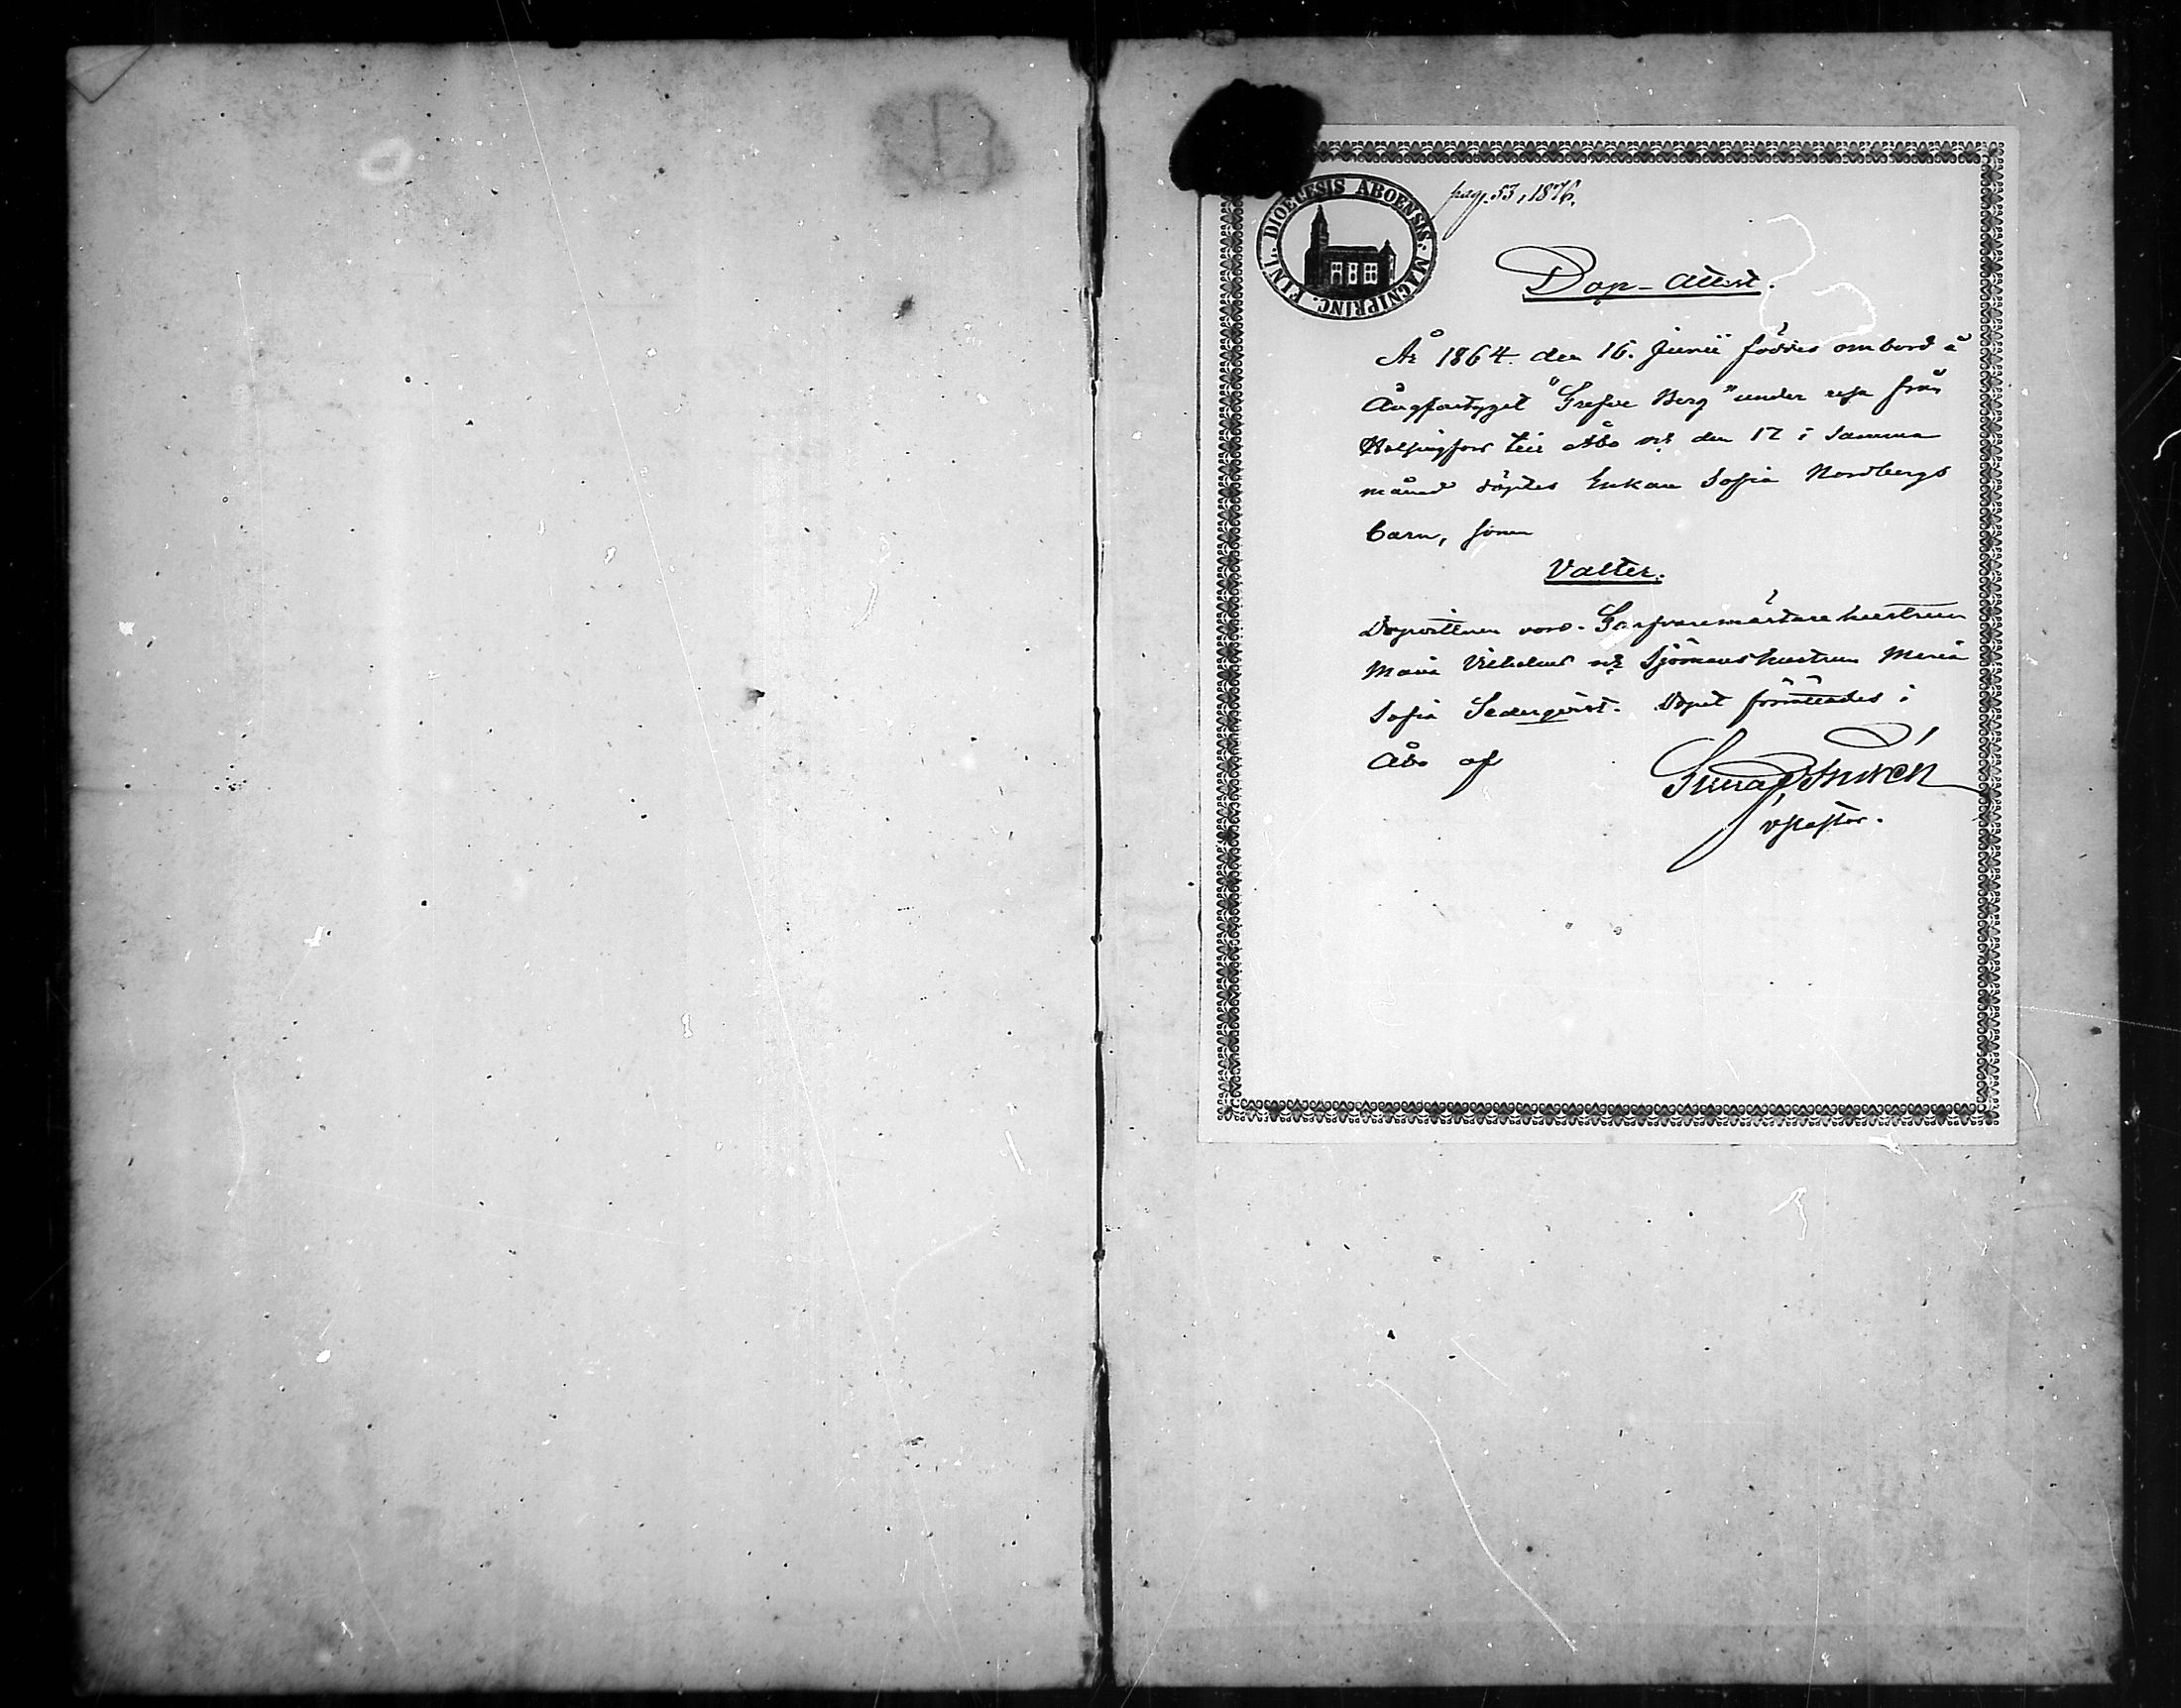 pag. 53, 1876.
DIOECESIS ABOENSIS. MAGNIPRINC. FINL.
Dop-Attest.
År 1864 den 16. Junii föddes ombord å
Ångfartyget "Grefve Berg" under resa från
Helsingfors till Åbo och den 17 i samma
månad döptes Enkan Sofia Nordbergs
barn, sonen
Valter.
Dopvittnen voro. Garfvaremästarehustrun
Maria och Sjömanshustrun Maria
Sofia Sederqvist. Dopet förrättades i
Åbo af
v pastor.